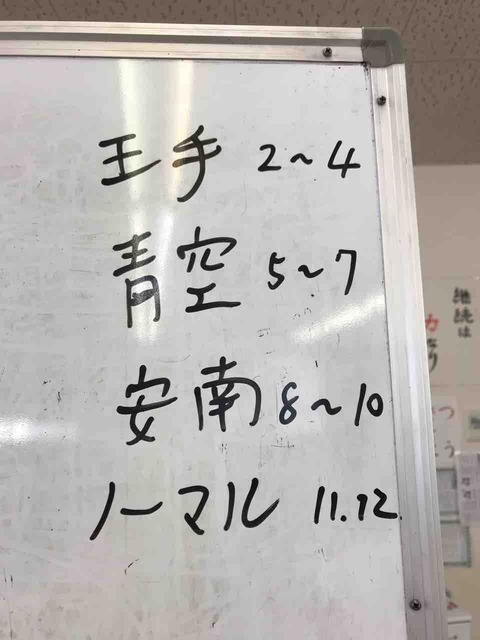 王手 2~4
青空 5~7
安南 8~10
ノーマル 11.12.
継続は
力なり